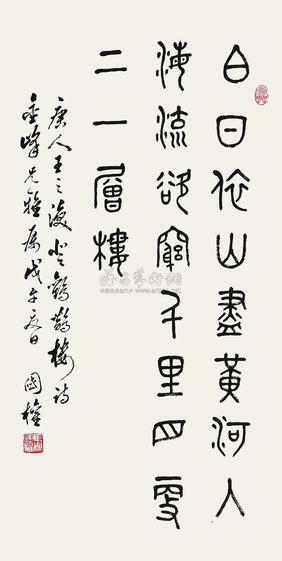 白日依山盡黃河入
海流欲窮千里目更
上一層樓
唐人王之渙登鸛鵲樓詩
金峰兄雅屬戊午夏日 國權